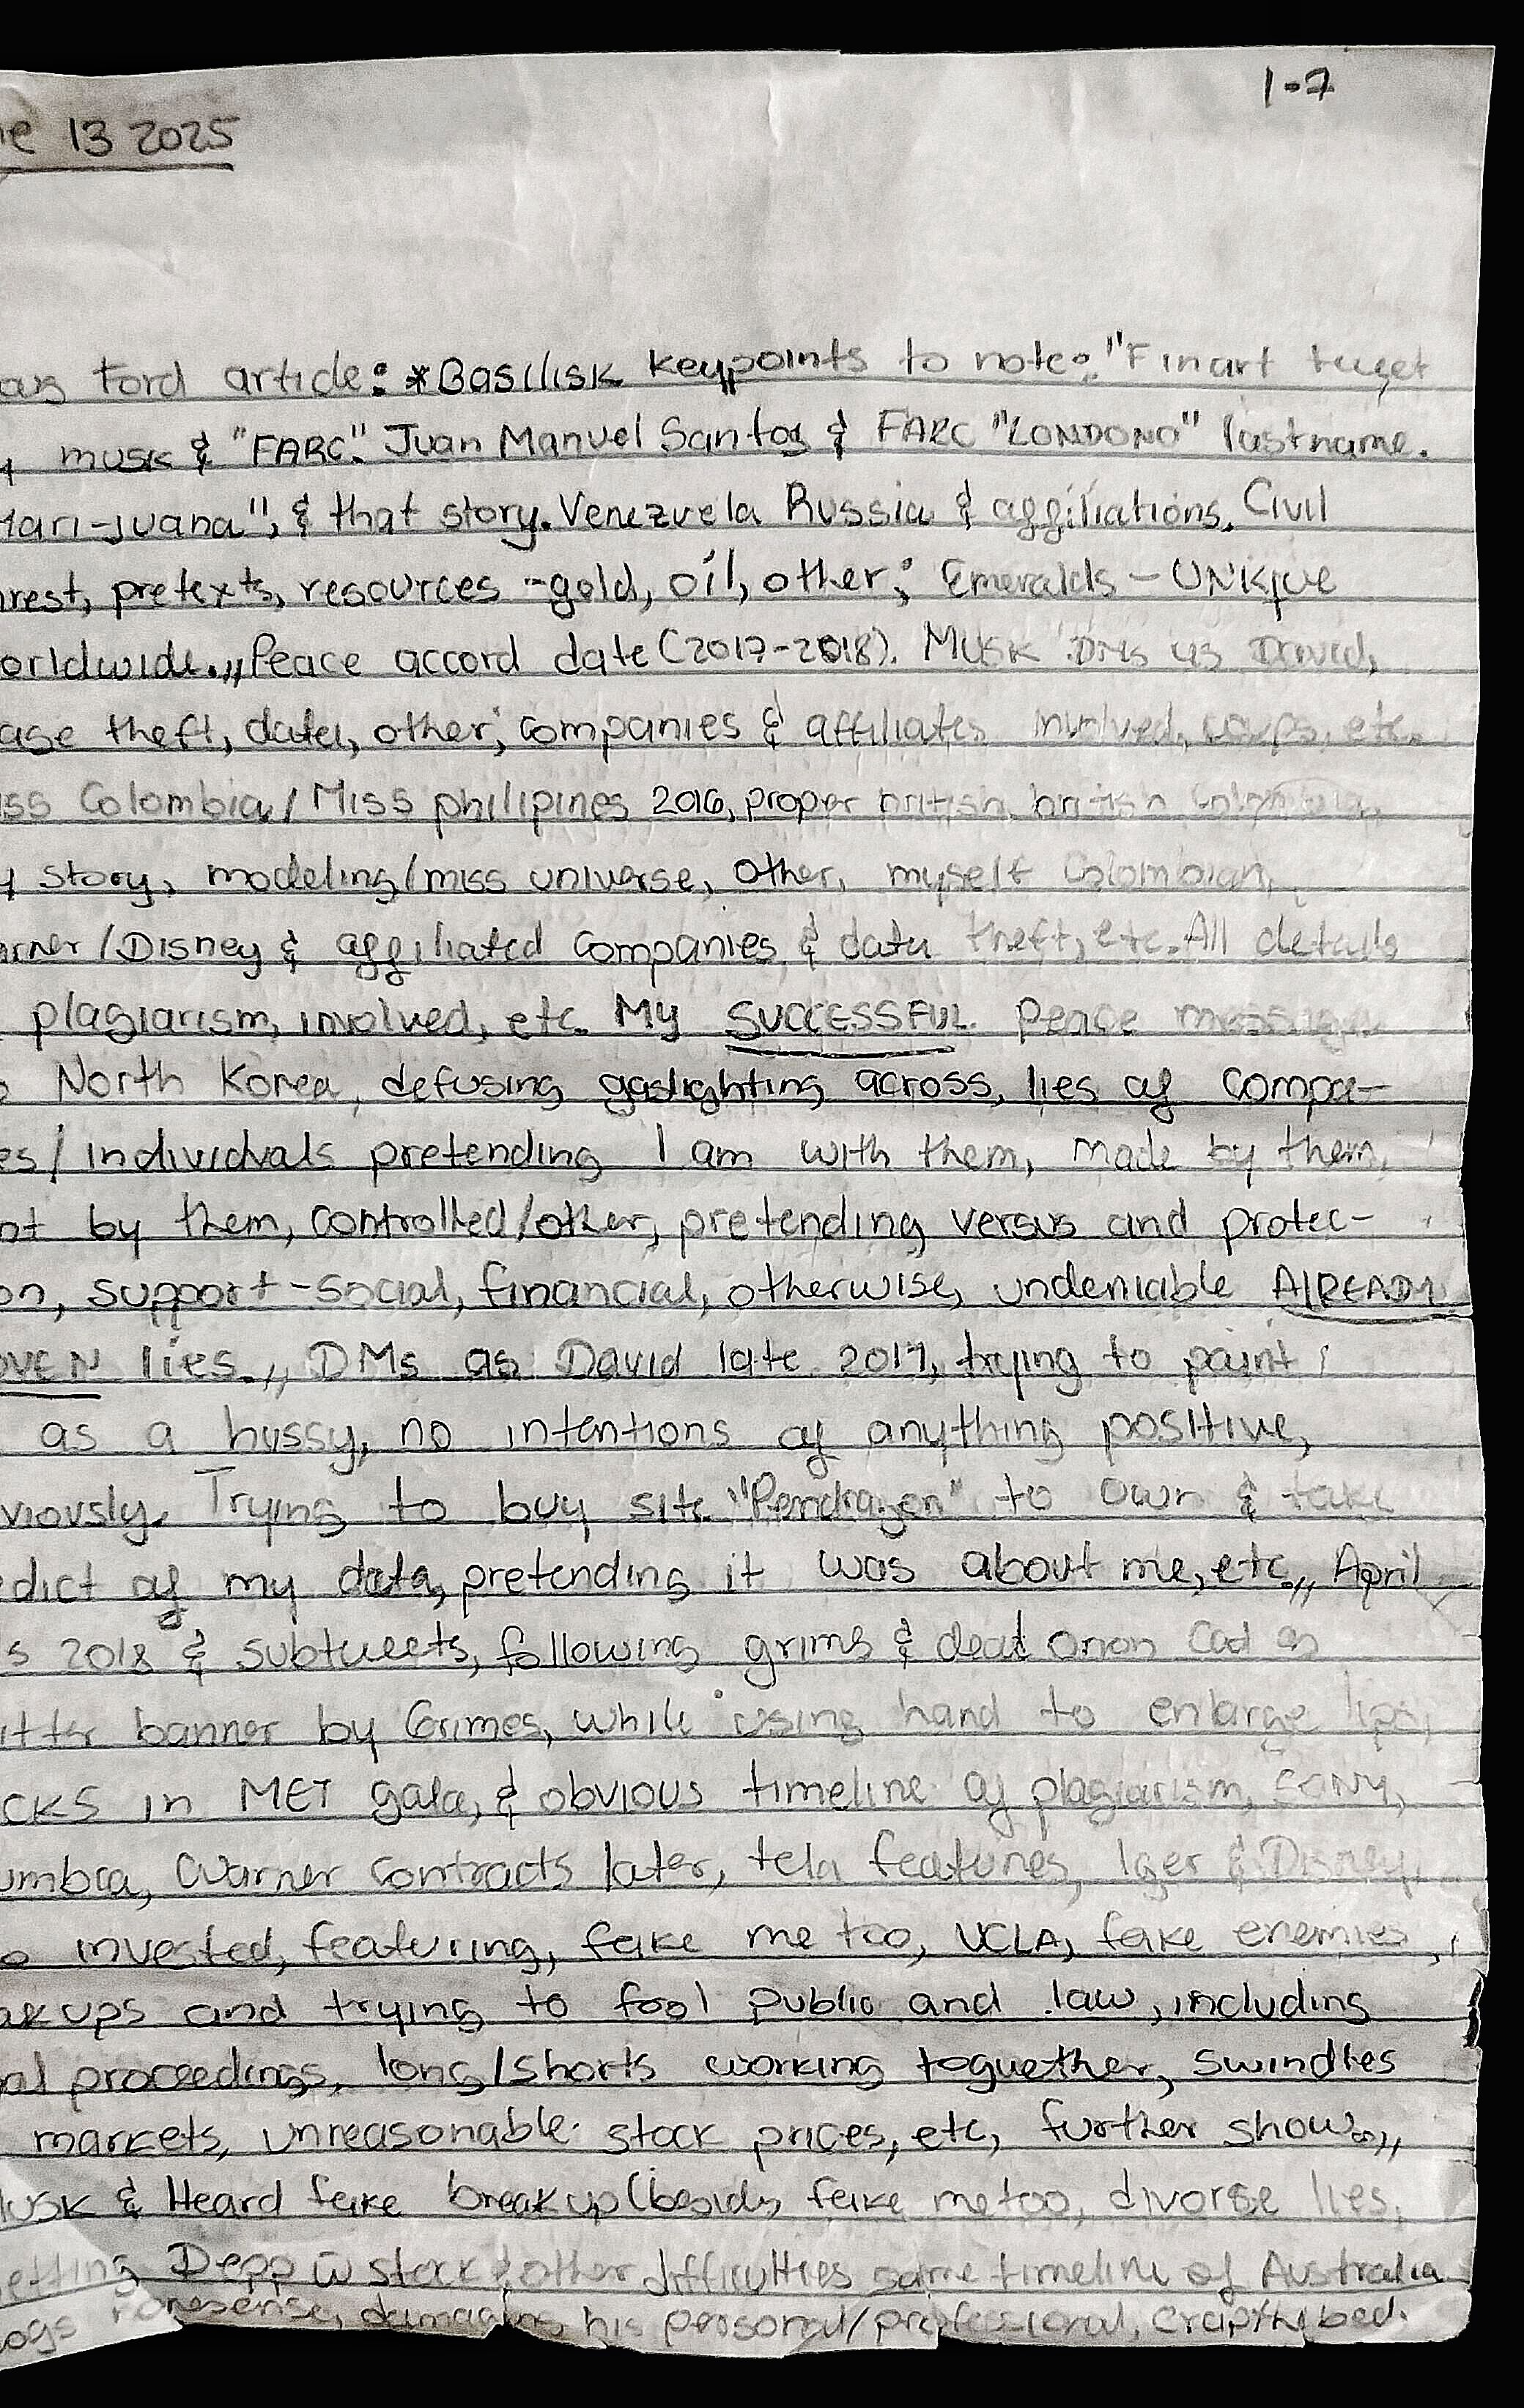 1-7
e 13 2025
ford article: *Basilisk keypoints to note: "Finart
musk & "FARC". Juan Manuel Santos & FARC "LONDONO" lastname.
ari-juana", & that story. Venezuela Russia & affiliations. Civil
rest, pretexts, resources -gold, oil, other; Emeralds - UNKque
orldwide.,, Peace accord date (2017-2018). Musk DMs as David,
ase theft, data, other; companies & affiliates involved, etc.
ss Colombia/Miss philipines 2016, proper british, british
y story, modeling/miss universe, other, myself Colombian,
rner/Disney & affiliated companies & data theft, etc. All details
plagiarism, involved, etc. My SUCCESSFUL peace
o North Korea, defusing gaslighting across, lies of compa-
es/individuals pretending I am with them, made by them,
nt by them, controlled/other, pretending versus and protec-
on, support-social, financial, otherwise, undeniable AlREADY
OVEN lies.,, DMs as David late 2017, trying to paint
as a hussy, no intentions of anything positive,
viously. Trying to buy site "Pendragon" to own & take
edict of my data, pretending it was about me, etc,,, April
s 2018 & subtweets, following grims & dead orion Cad as
itter banner by Grimes, while using hand to enlarge lips,
CKS in MET gala, & obvious timeline of plagiarism, SONY,
umbia, Warner contracts later, tela features, Iger & Disney,
o invested, featuring, fake me too, UCLA, fake enemies,
akups and trying to fool public and law, including
al proceedings, long/shorts working toguether, swindles
markets, unreasonable stock prices, etc, further shows,,
usk & Heard fake breakup (besides fake metoo, divorse lies,
etting Depp w stock & other difficulties same timeline of Australia
ogs nonesense, damaging his personal/professional, crapthebed.